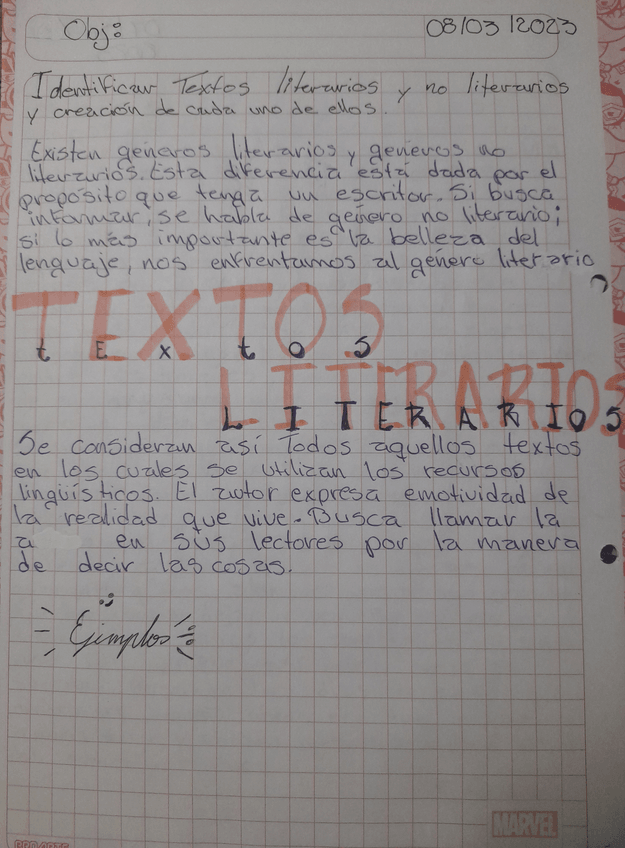 Obj:
08/03/2023
Identificar Textos literarios y no literarios
y creación de cada uno de ellos.
Existen géneros literarios y géneros no
literarios. Esta diferencia está dada por el
propósito que tenga un escritor. Si busca
informar, se habla de género no literario;
si lo más importante es la belleza del
lenguaje, nos enfrentamos al género literario
TEXTOS
tExtos
LITERARIOS
LITERARIOS
Se consideran así Todos aquellos textos
en los cuales se utilizan los recursos
lingüísticos. El autor expresa emotividad de
la realidad que vive. Busca llamar la
a en sus lectores por la manera
de decir las cosas.
Ejemplos:
MARVEL